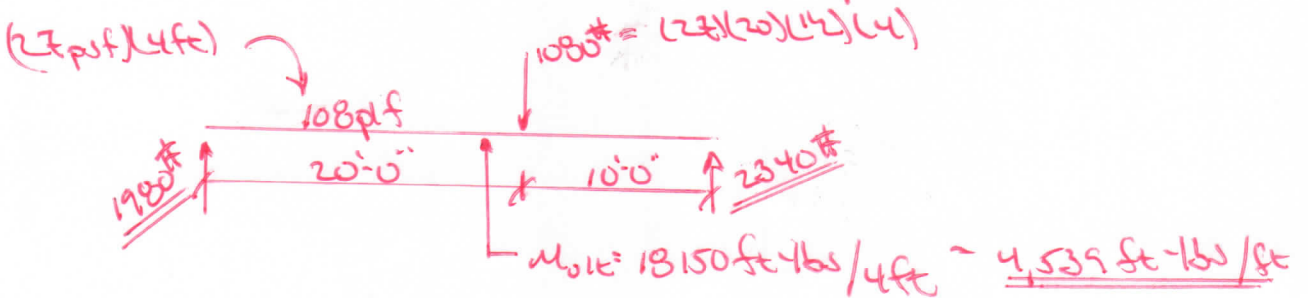 (27psf)(4ft)
1080# = (27)(20)(1/2)(4)
108plf
1980#
20'-0"
10'-0"
2340#
Mult = 18150 ft-lbs/4ft = 4,539 ft-lbs/ft